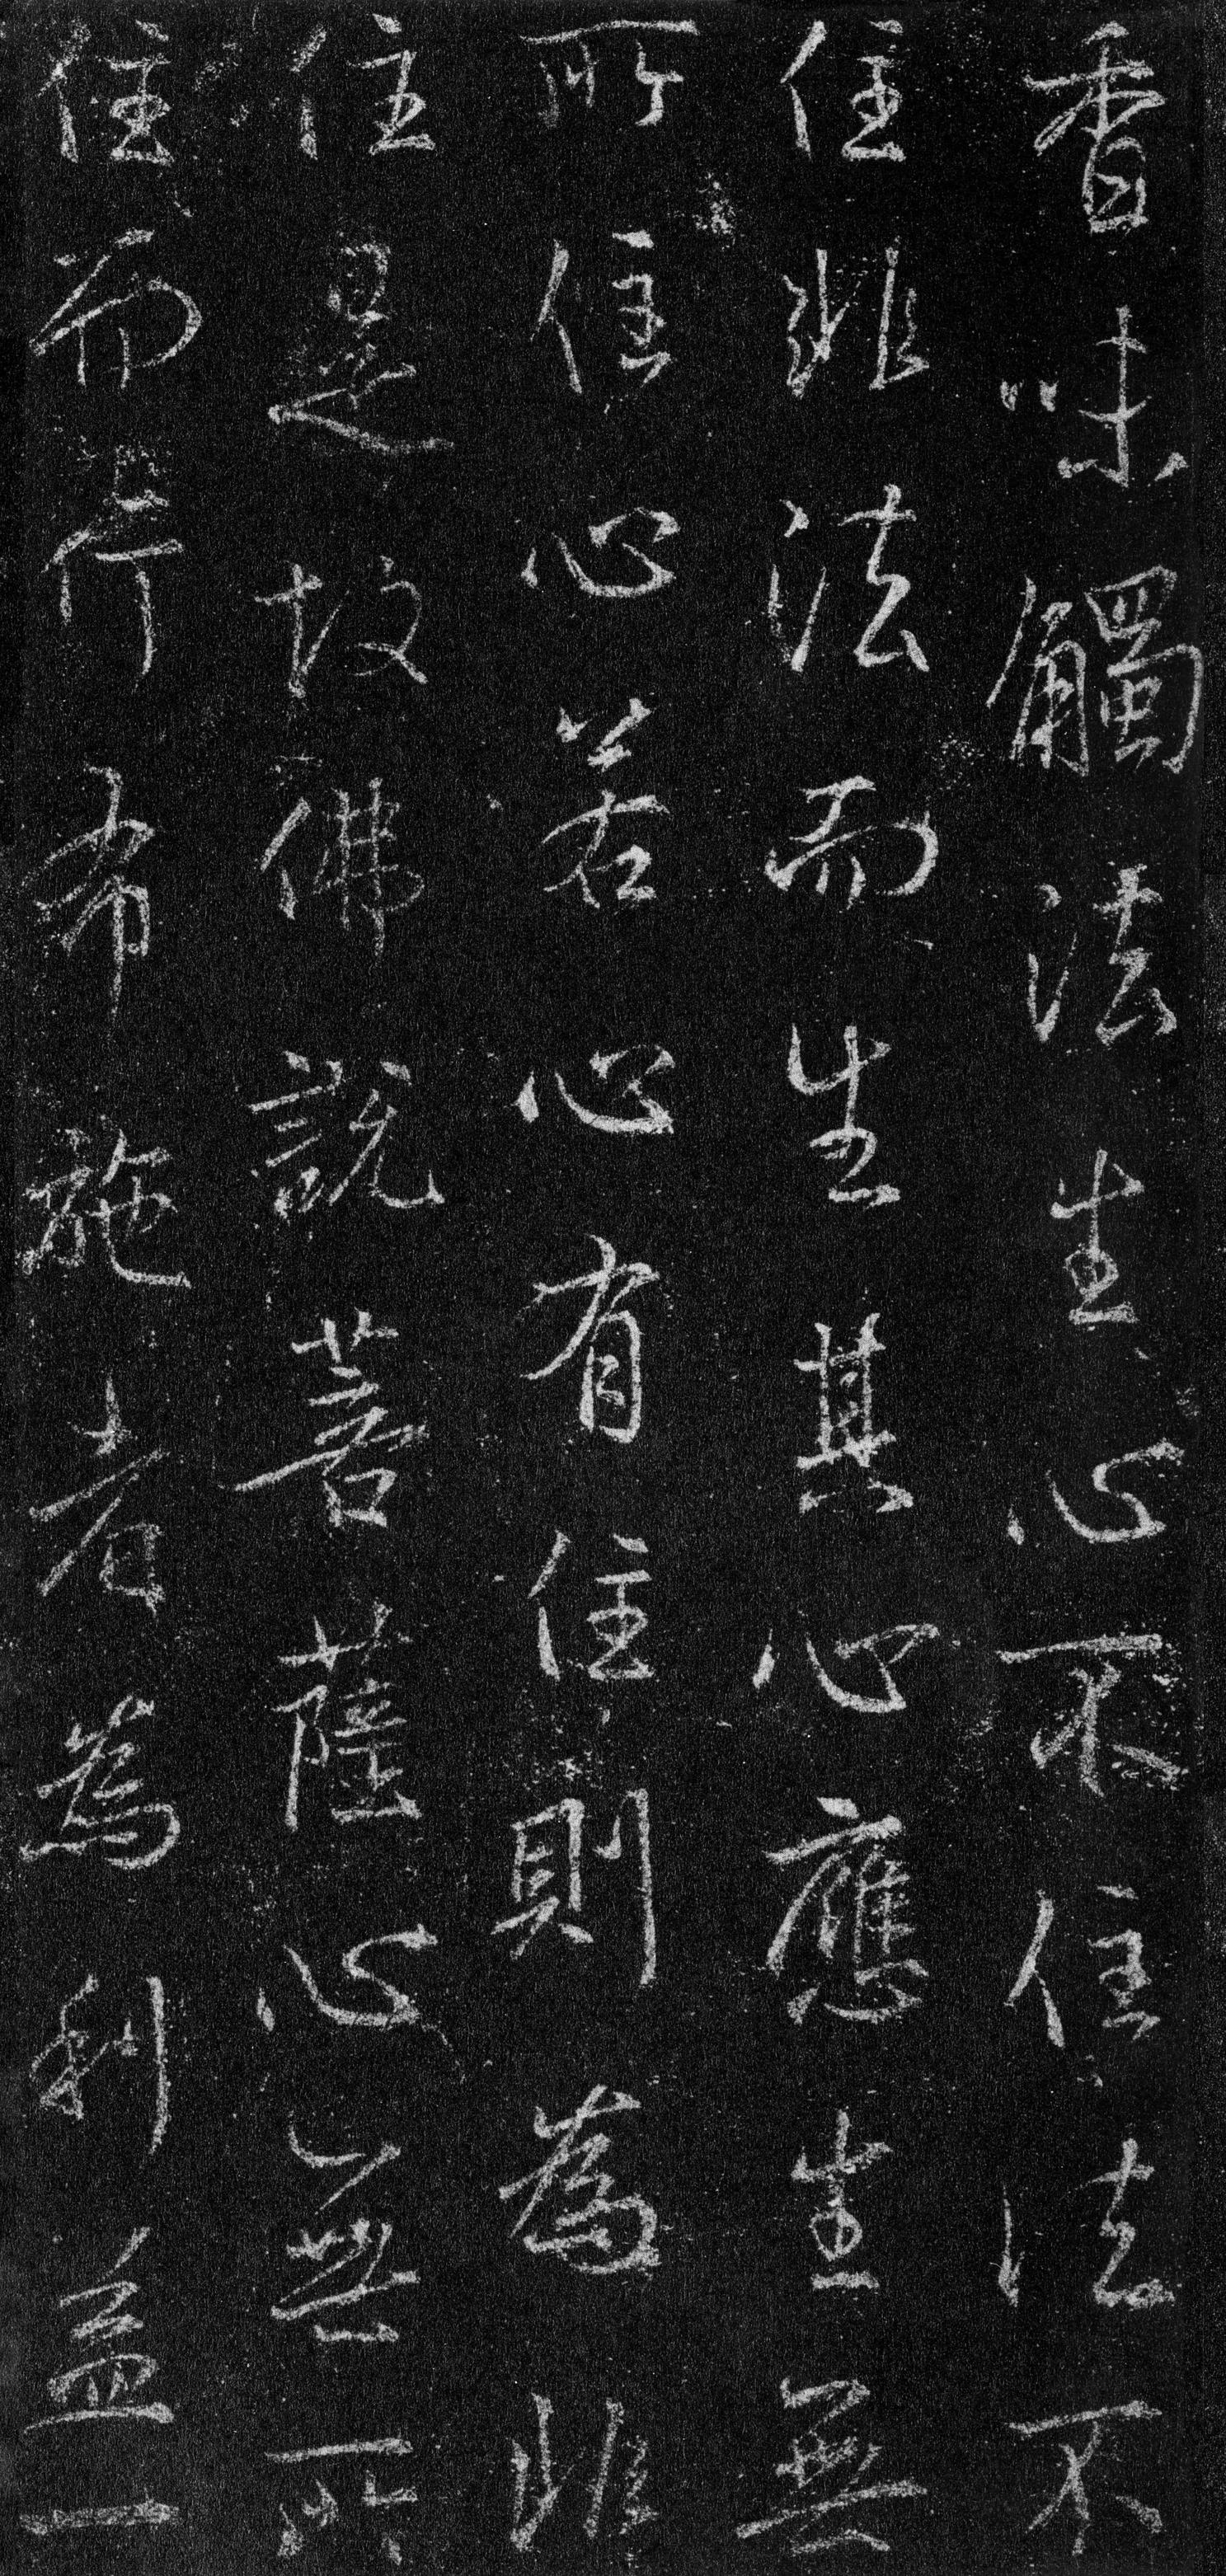 香味觸法生心不住法不
住非法而生其心應生無
所住心若心有住則為非
住是故佛說菩薩心無所
住而行布施者為利益一